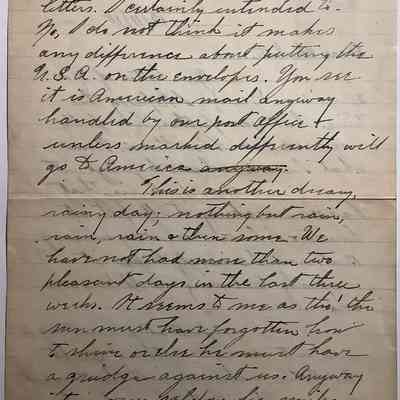 letters. I certainly intended to.
No, I do not think it makes
any difference about putting the
U.S.A. on the envelopes. You see
it is American mail anyway
handled by our post office &
unless marked differently will
go to America anyway.
This is another dreary,
rainy day; nothing but rain,
rain, rain & then some. We
have not had more than two
pleasant days in the last three
weeks. It seems to me as tho' the
sun must have forgotten how
to shine or else he must have
a grudge against us. Anyway